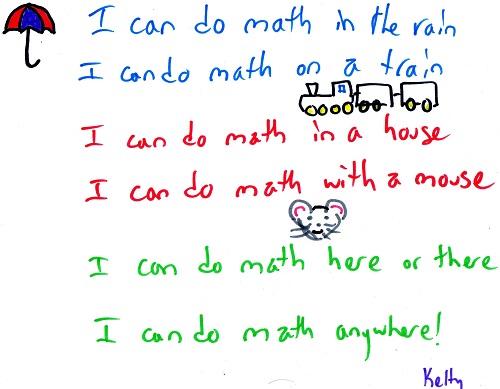 I can do math in the rain
I can do math on a train
I can do math in a house
I can do math with a mouse
I can do math here or there
I can do math anywhere!
Kelty